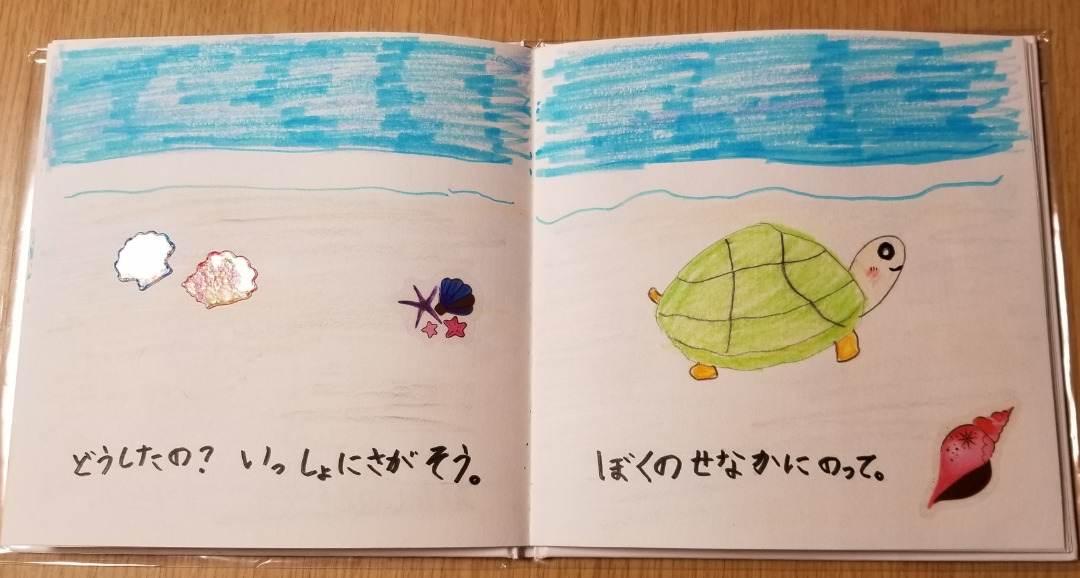 どうしたの? いっしょにさがそう。
ぼくのせなかにのって。